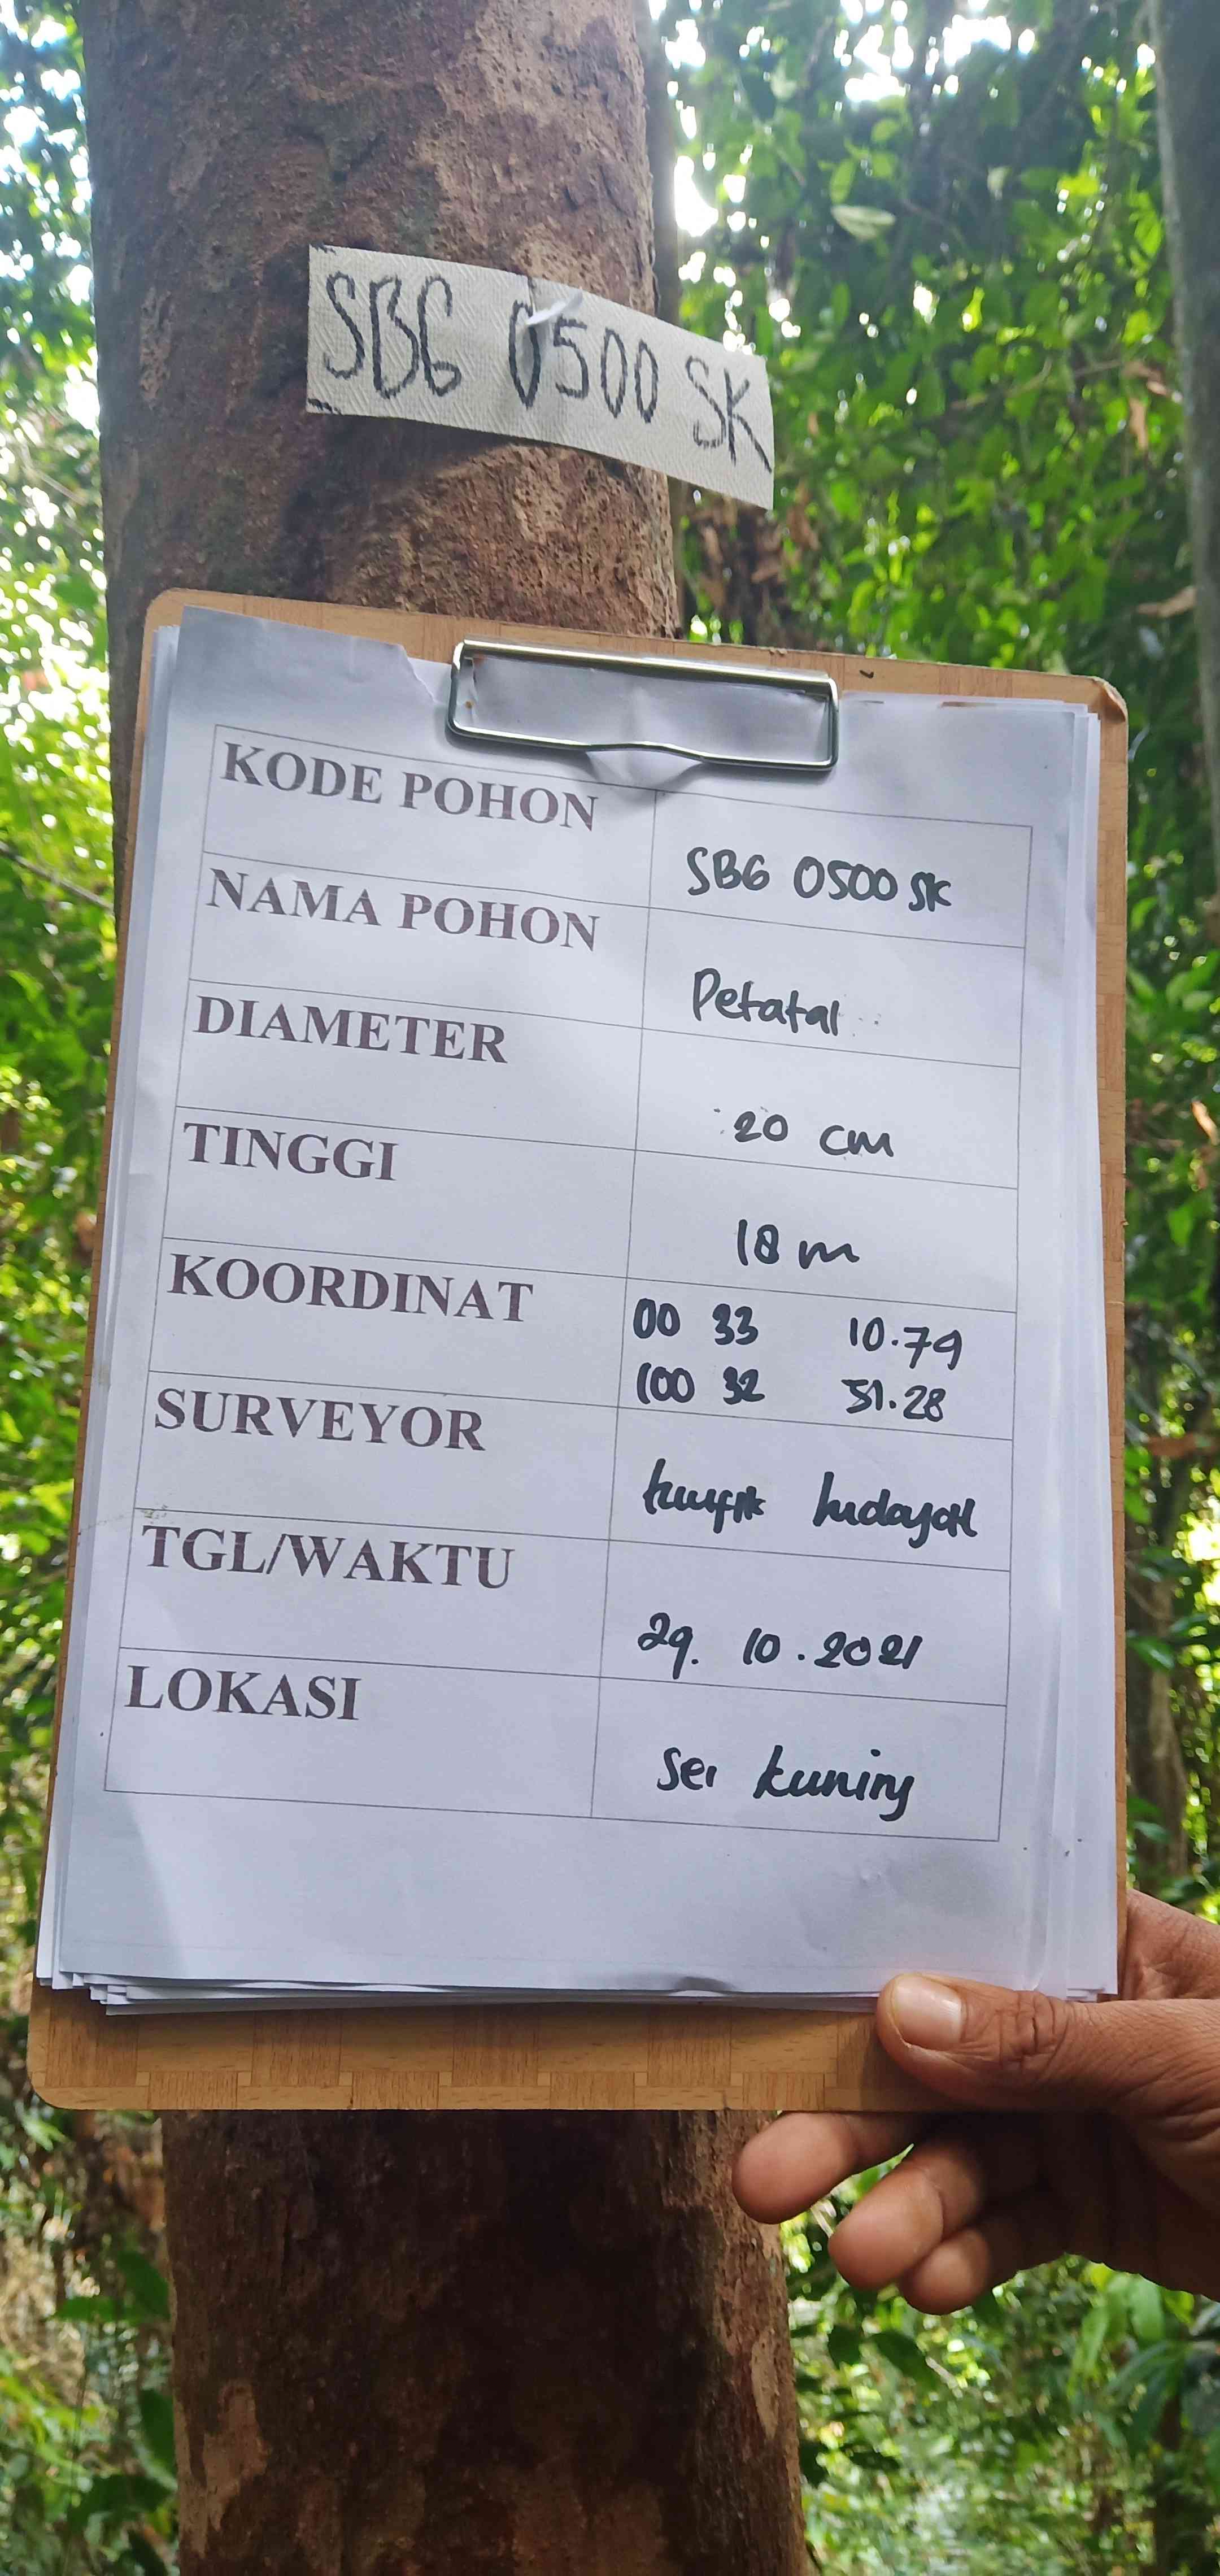 SBG 0500 SK
KODE POHON SBG 0500 SK
NAMA POHON Petatal
DIAMETER 20 cm
TINGGI 18 m
KOORDINAT 00 33 10.79
100 32 51.28
SURVEYOR taufik hidayat
TGL/WAKTU 29. 10. 2021
LOKASI Sei kuning